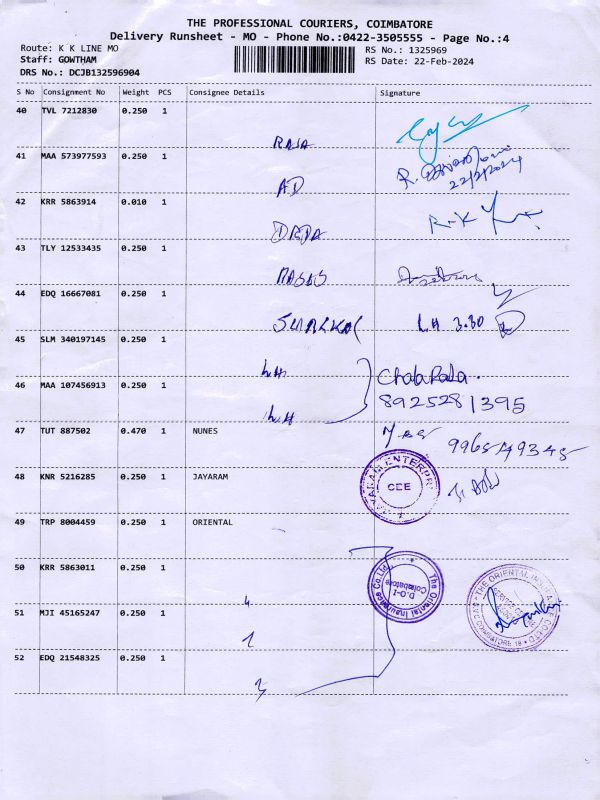 THE PROFESSIONAL COURIERS, COIMBATORE
Delivery Runsheet - MO - Phone No.:0422-3505555 - Page No.:4
Route: K K LINE MO
RS No.: 1325969
Staff: GOWTHAM
RS Date: 22-Feb-2024
DRS No.: DCJB132596904
S No Consignment No Weight PCS Consignee Details Signature
40 TVL 7212830 0.250 1
RAJA
41 MAA 573977593 0.250 1
AD
22/2/2024
42 KRR 5863914 0.010 1
R-K
43 TLY 12533435 0.250 1
44 EDQ 16667081 0.250 1
LH 3.30
45 SLM 340197145 0.250 1
LH
46 MAA 107456913 0.250 1
LH
8925281395
47 TUT 887502 0.470 1 NUNES
48 KNR 5216285 0.250 1 JAYARAM
JAYARAM ENTERPRI
CEE
49 TRP 8004459 0.250 1 ORIENTAL
50 KRR 5863011 0.250 1
4
The Oriental Insurance Co.Ltd.
D.O-I
Coimbatore
THE ORIENTAL IN
COIMBATORE 18
51 MJI 45165247 0.250 1
2
52 EDQ 21548325 0.250 1
3